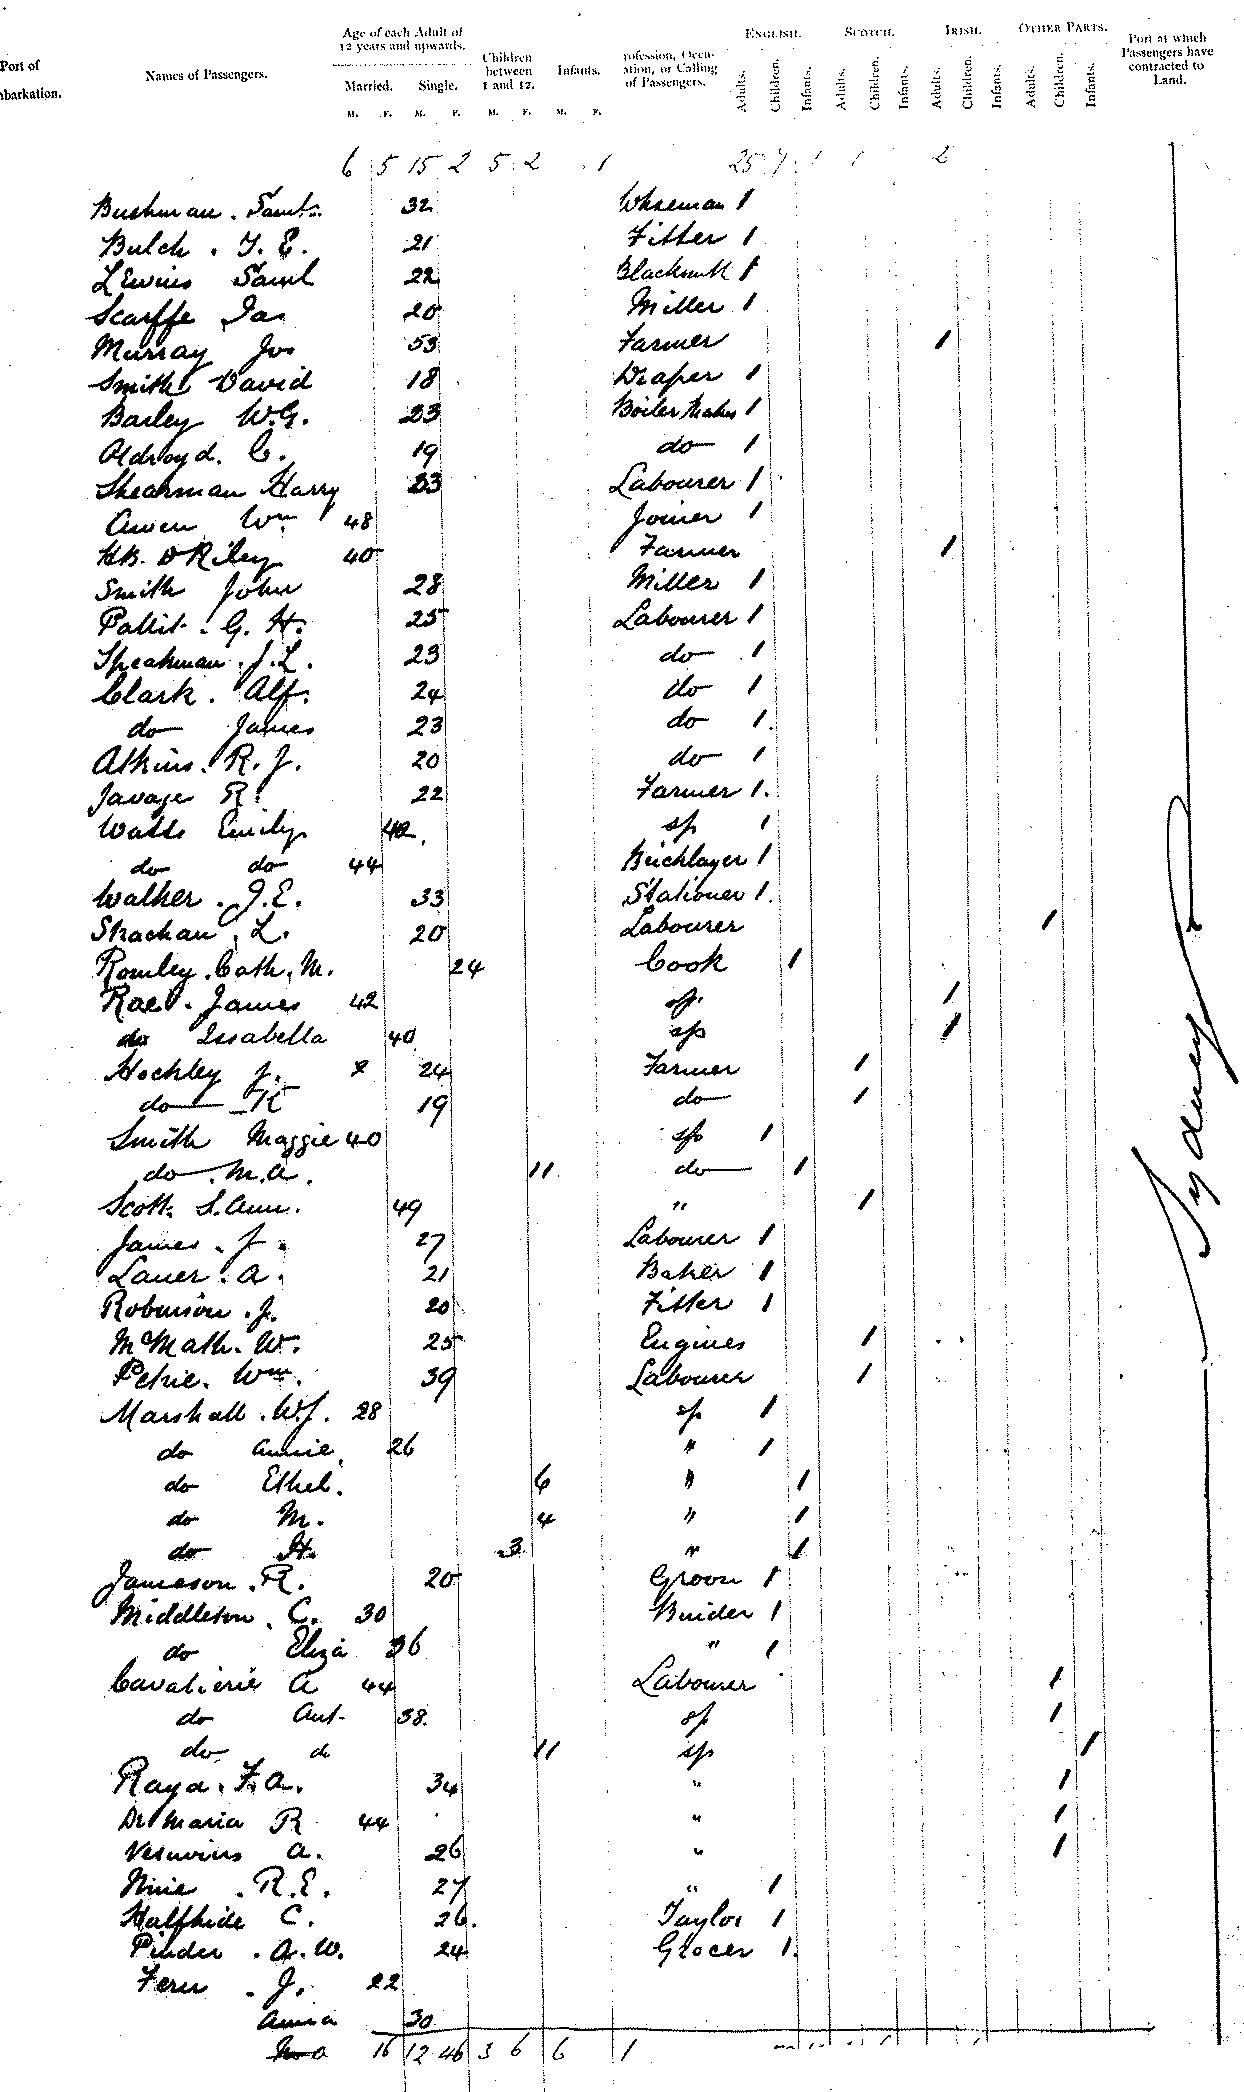 Port of
mbarkation.
Names of Passengers.
Age of each Adult of
12 years and upwards.
Married. Single.
M. F. M. F.
Children
between
1 and 12.
M. F.
Infants.
M. F.
rofession, Occu-
ation, or Calling
of Passengers.
ENGLISH.
Adults. Children. Infants.
SCOTCH.
Adults. Children. Infants.
IRISH.
Adults. Children. Infants.
OTHER PARTS.
Adults. Children. Infants.
Port at which
Passengers have
contracted to
Land.
6 5 15 2 5 2 1 25 7 1 1 2
Bushman . Saml. 32 1
Bulch . T. E. 21 Fitter 1
Lewins Saml 22 Blacksmith 1
Scarffe Jas 20 Miller 1
Murray Jos 53 Farmer 1
Smith David 18 Draper 1
Barley W.G. 23 Boiler Maker 1
Aldroyd. C. 19 do 1
Shearman Harry 23 Labourer 1
Owen Wm 48 Joiner 1
Riley 40 Farmer 1
Smith John 28 Miller 1
G. H. 25 Labourer 1
Speakman . J. L. 23 do 1
Clark . Alf. 24 do 1
do James 23 do 1
Atkins. R. J. 20 do 1
Savage R. 22 Farmer 1.
Watts Emily 42 sp 1
do do 44 Bricklayer 1
Walker . J. E. 33 Stationer 1.
Strachan . L. 20 Labourer 1
Romley . Cath. M. 24 Cook 1
Rae . James 42 sp 1
do Issabella 40 sp 1
Hockley J. 24 Farmer 1
do K 19 do 1
Smith Maggie 40 sp 1
do . M. A. 11 do 1
Scott S. Ann. 49 " 1
James . J . 27 Labourer 1
Lauer . A. 21 Baker 1
Robinson . J. 20 Fitter 1
McMath. W. 25 Engines 1
Petrie. Wm. 39 Labourer 1
Marshall . W. J. 28 sp 1
do Annie. 26 " 1
do Ethel. 6 " 1
do M. 4 " 1
do H. 3 " 1
Jameson . R. 20 Groom 1
Middleton . C. 30 1
do Eliza 36 " 1
Cavalierie A 44 Labourer 1
do Ant. 38. sp 1
do do 11 sp 1
Raya . F. A. 34 " 1
De Maria R 44 " 1
Vesuvius A. 26 " 1
R. E. 27 " 1
Halfhide C. 26. Taylor 1
Pinder . A. W. 24 Grocer 1.
Fern . J. 22
Anna 30
16 12 46 3 6 6 1
Sydney